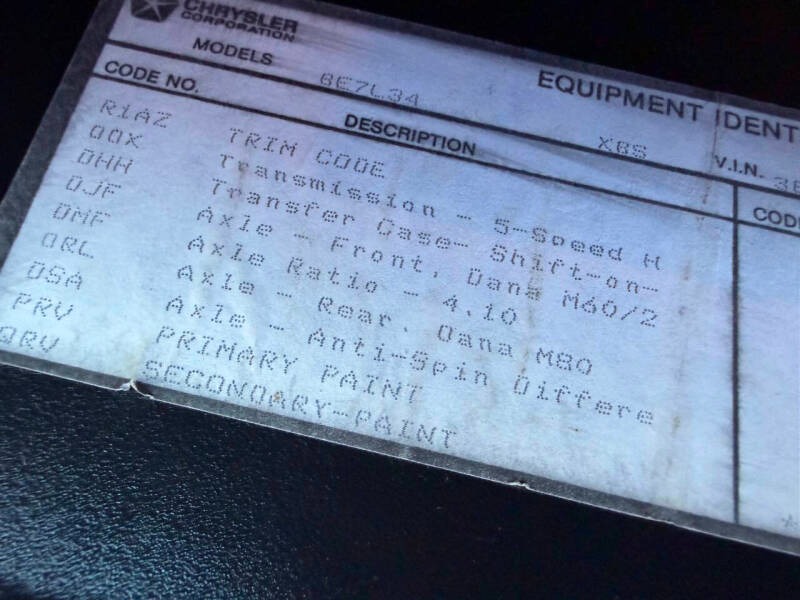 CHRYSLER
CORPORATION
EQUIPMENT IDENT
MODELS 8E7L34 XBS V.I.N. 3B
CODE NO. DESCRIPTION COD
R1AZ TRIM CODE
DDX Transmission - 5-Speed H
DHH Transfer Case- Shift-on-
DJF Axle - Front, Dana M60/2
DMF Axle Ratio - 4.10
DRL Axle - Rear, Dana M80
DSA Axle - Anti-Spin Differe
PRV PRIMARY PAINT
QRV SECONDARY-PAINT